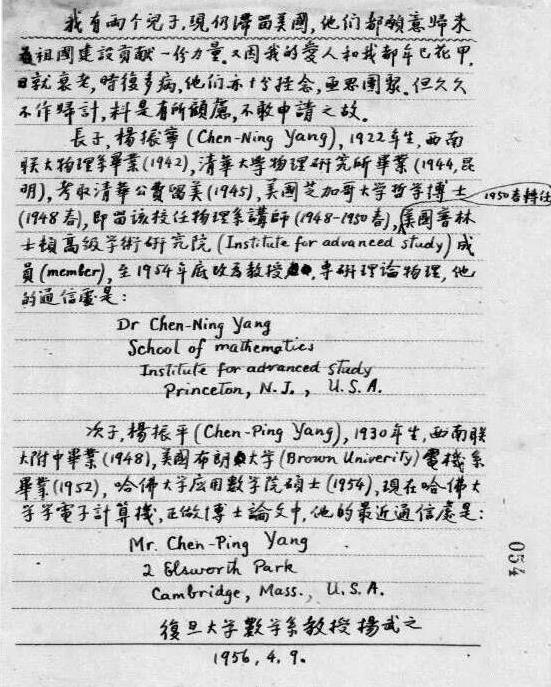 我有兩个兒子,現仍滯留美國,他们都願意歸来
祖國建設貢献一份力量.又因我的愛人和我都年已花甲.
日就衰老,時復多病,他们亦十分挂念,亟思團聚.但久久
不作歸計,料是有所顧慮,不敢申請之故.
長子,楊振寧(Chen-Ning Yang),1922年生,西南
联大物理系畢業(1942),清華大學物理研究所畢業(1944,昆
明),考取清華公費留美(1945),美國芝加哥大学哲学博士
1950春轉任
(1948春),即留該校任物理系講師(1948-1950春),美國普林
士頓高級学術研究院(Institute for advanced study)成
員(member),至1954年底改為教授,專研理論物理,他
的通信處是:
Dr Chen-Ning Yang
School of mathematics
Institute for advanced study
Princeton, N.J., U.S.A.
次子,楊振平(Chen-Ping Yang),1930年生,西南联
大附中畢業(1948),美國布朗大学(Brown Univerity)電機系
畢業(1952),哈佛大学应用數学院碩士(1954),現在哈佛大
学学電子計算機,正做博士論文中,他的最近通信處是:
Mr. Chen-Ping Yang
2 Elsworth Park
Cambridge, Mass., U.S.A.
054
復旦大学數学系教授楊武之
1956,4.9.